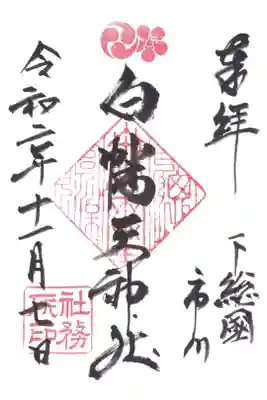 奉拝
下総國
市川
白幡天神社
令和二年十一月七日
社務
所印